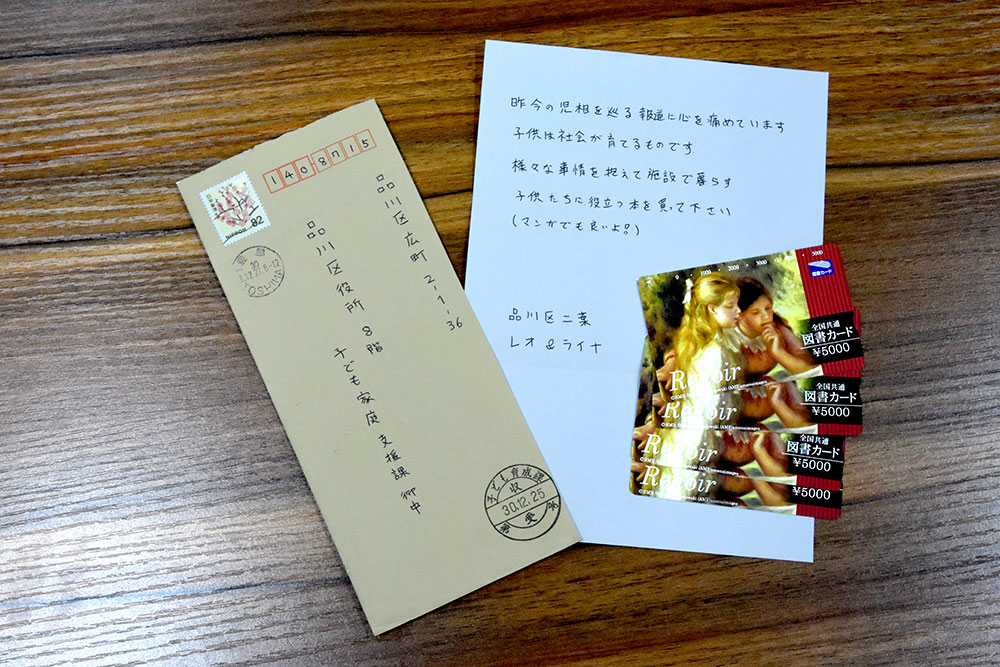 140-8715
品川区広町2-1-36
品川区役所 8階
子ども家庭支援課 御中
NIPPON 82
30.12.25
昨今の児相を巡る報道に心を痛めています
子供は社会が育てるものです.
様々な事情を抱えて施設で暮らす
子供たちに役立つ本を買って下さい
(マンガでも良いよ!)
品川区二葉
レオ&ライヤ
0 1000 2000 3000 5000
図書カード
全国共通
図書カード
¥5000
Renoir
全国共通
図書カード
¥5000
Renoir
全国共通
図書カード
¥5000
Renoir
¥5000
Renoir